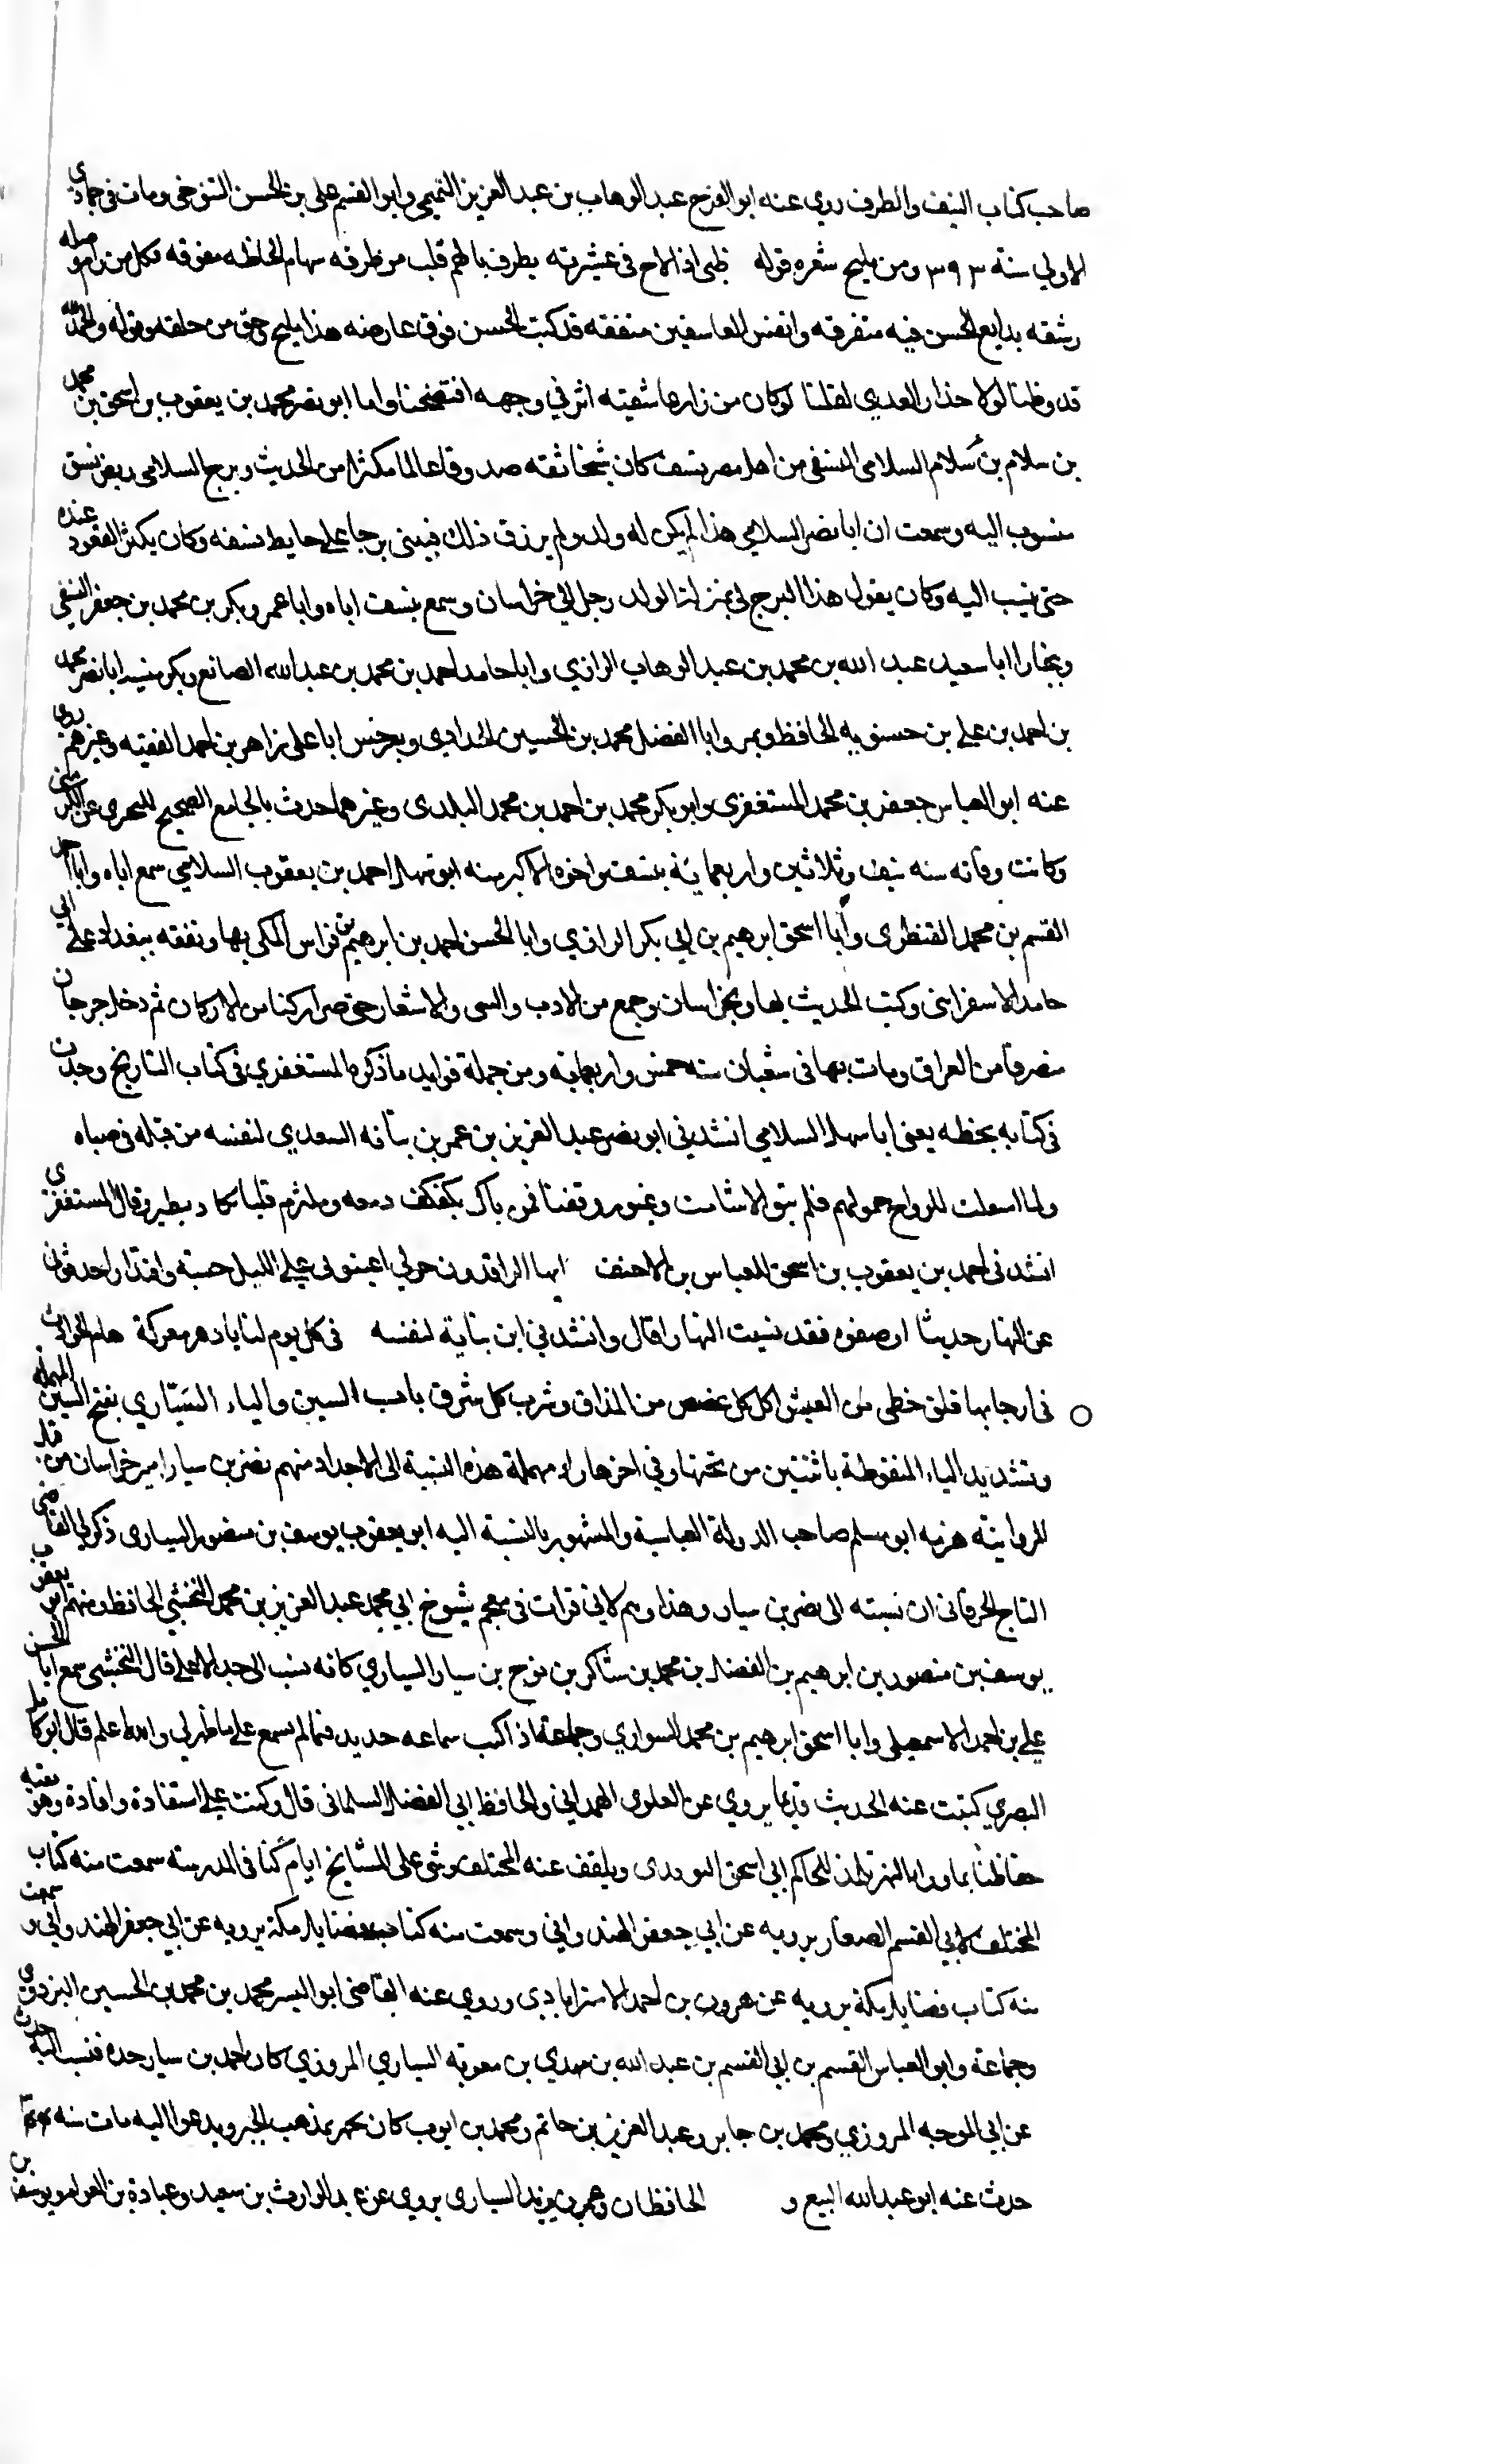 صاحب كتاب النيف والطرف روي عنه ابو الفرج عبد الوهاب بن عبد العزيز التميمي وابو القسم على بن الحسن التنوخى ومات فى جمادى
الاولي سنة ٣٩٣ ومن مليح شعره قوله ظبى اذا لاح فى عشيرته يطرف بالهم قلب من طرفه سهام الحاظه مفوقه فكل من رام وصله
رشقه بدايع الحسن فيه متفرقه وانفس العاسقين متفقه قد كتب الحسن فوق عارضه هذا مليح وحق من خلقه وقوله والحمد لله
قد وظنا لولا حذار العدى لقلنا لو كان من زارها شفيته اثر في وجهه افتضحنا واما ابو نصر محمد بن يعقوب بن اسحق بن محمد
بن سلام بن سلام السلامى النسفى من اهل نسف كان شيخا ثقه صدوقا عالما مكثرا من الحديث وبرج السلامى ربض نسف
منسوب اليه وسمعت ان ابا نصر السلامى هذا لم يكن له ولد ولم يرزق ذلك فبنى برجا على حايط نسفه وكان يكثر القعود عنده
حتى نسب اليه وكان يقول هذا البرج لى بمنزلة الولد رحل الي خراسان وسمع بنسف اباه وابا عمرو بكر بن محمد بن جعفر النسفى
وبخارا ابا سعيد عبد الله بن محمد بن عبد الوهاب الرازي وابا حامد احمد بن محمد بن عبد الله الصانع وبكرمنيه ابا نصر محمد
بن احمد بن علي بن حسنويه الحافظ وبمرو ابا الفضل محمد بن الحسين الحدادى وبسرخس ابا على زاهر بن احمد الفقيه وغيرهم روى
عنه ابو العباس جعفر بن محمد المستغفرى وابو بكر محمد بن احمد بن محمد البلدى وغيرهما حدث بالجامع الصحيح للبحرى عن الكشى
وكانت وفاته سنه نيف وثلاثين واربعماية بنسف واخوه الاكبر منه ابو سهل احمد بن يعقوب السلامي سمع اباه وابا احمد
القسم بن محمد القنطرى وابا اسحق ابرهيم بن ابي بكر الرازي وابا الحسن احمد بن ابرهيم بن فراس المكى بها وتفقه ببغداد على ابي
حامد الاسفراينى وكتب الحديث بها وبخراسان وجمع من الادب والسى والاشعار حتى صار ركنا من الاركان ثم دخل جرجان
منصرفا من العراق ومات بها فى شعبان سنه خمس واربعمايه ومن جملة فوايد ما ذكره المستغفري فى كتاب التاريخ وجدت
فى كتابه بخطه يعنى ابا سهل السلامي انشدني ابو نصر عبد العزيز بن عمر بن نباته السعدي لنفسه من قبله فى صباه
ولما اسعلت للرواح حمولهم فلم يبق الا شامت وغيور وقفنا فمن باك يكفكف دمعه وملتزم قلبا كاد يطير وقال المستغفرى
انشدنى احمد بن يعقوب بن اسحق للعباس بن الاحنف ايها الراقدون حولي اعينونى علي الليل حسبة وافتدارا حدثونى
عن النهار حديثا او صفوه فقد نسيت النهارا قال وانشدني ابن نباتة لنفسه فى كل يوم لنا يا دهر معركة هام الحوادث
فى ارجايها فلق حظى من العيش اكل كل غصص من المذاق وشرب كل شرق باب السين والياء السَيّاري بفتح السين المهملة
وتشديد الياء المنقوطة باثنتين من تحتها وفي اخرها راء مهملة هذه النسبة الى الاجداد منهم نصر بن سيار امير خراسان من قبل
المروانيه هزمه ابو مسلم صاحب الدولة العباسية والمشهور بالنسبة اليه ابو يعقوب يوسف بن منصور السيارى ذكر لي القاضى
التاج الخرقانى ان نسبته الى نصر بن سيار وهذا وهم لانى قرات فى معجم شيوخ ابي محمد عبد العزيز بن محمد النخشبي الحافظ ومنهم ابو يعقوب
يوسف بن منصور بن ابرهيم بن الفضل بن محمد بن شاكر بن نوح بن سيار السياري كانه نسب الى جده الاعلى قال النخشبى سمع ابا الحسن
علي بن احمد الاسمعيلى وابا اسحق ابرهيم بن محمد السواري وجماعة اذ اكتب سماعه حديد فيما لم يسمع على ما ظهر لي والله اعلم قال ابو كامل
البصري كتبت عنه الحدث قديما يروي عن العلوى الهمدانى والحافظ ابي الفضل السلمانى قال وكتبت علي استفادة وافادة وهو بقيه
حفاظنا بما وراء النهر تلمذ للحاكم ابي اسحق وبلقف عنه المختلف وشى على المشايخ ايام كنا فى المدرسته سمعت منه كتاب
المختلف لابى القسم الصفار يرويه عن ابي جعفر الهندوانى وسمعت منه كتاب فضايل مكة يرويه عن ابي جعفر الهندوانى وسمعت
منه كتاب فضايل مكة يرويه عن هرون بن احمد الاسترابادي وروي عنه القاضى ابو اليسر محمد بن محمد بن الحسين البزدوى
وجماعة وابو العباس القسم بن ابي القسم بن عبد الله بن مهدي بن معويه السياري المروزي كان احمد بن سيار جده فنسب اليه حدث
عن ابي الموجه المروزي ومحمد بن جابر وعبد العزيز بن حاتم ومحمد بن ايوب كان يجهر بمذهب الجبر ويدعوا اليه مات سنه
حدث عنه ابو عبد الله البيع و الحافظان وعمر بن يزيد السيارى يروى عن عبد الوارث بن سعيد وعبادة بن العوام ويوسف بن